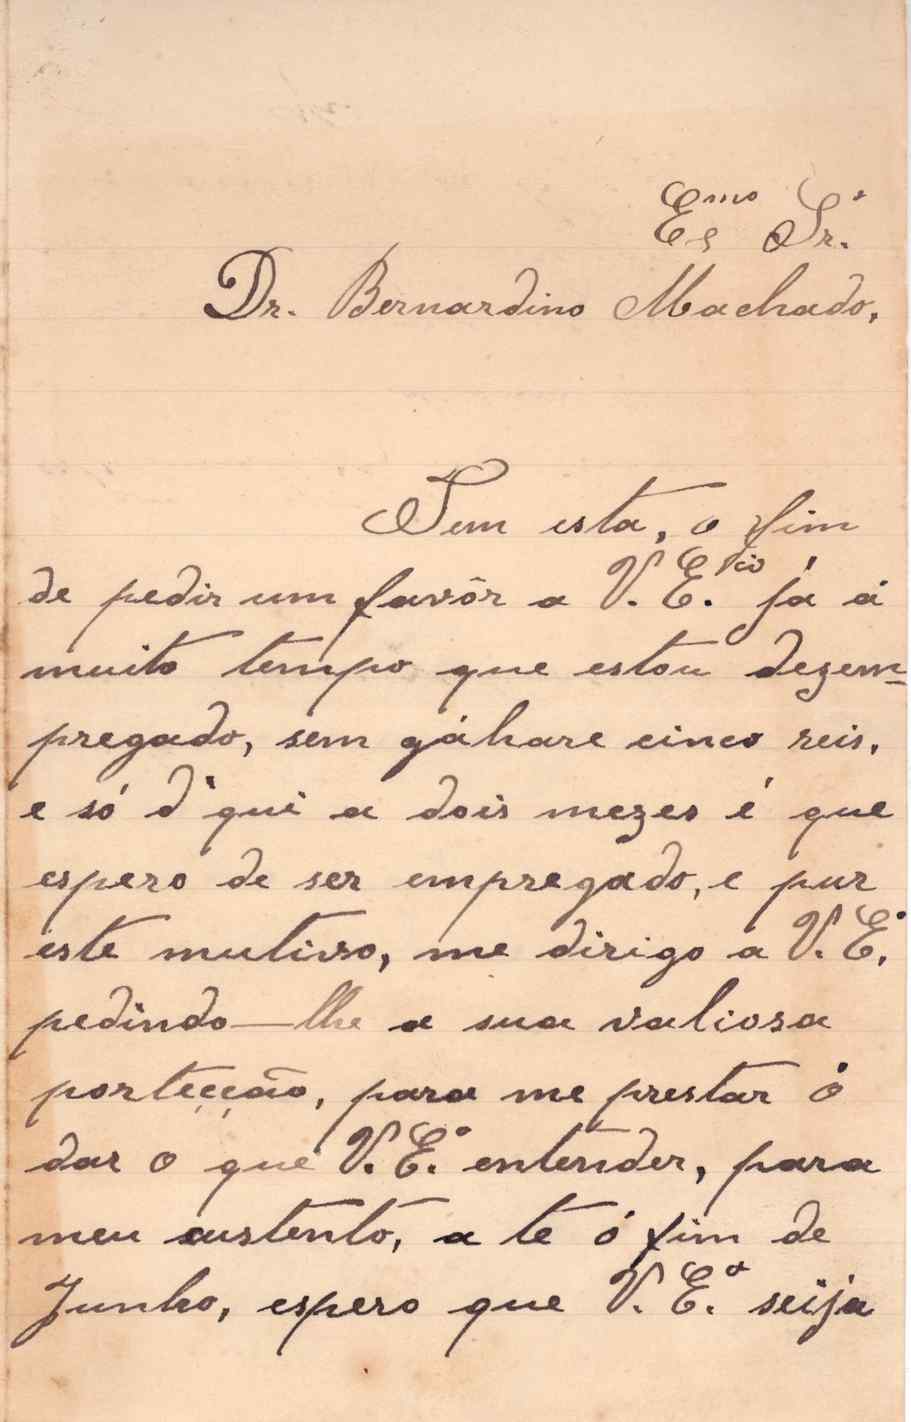 Es.mo Sr.
Dr. Bernardino Machado,
Tem esta, o fim
de pedir um favôr a V. E.cia já á
muito tempo que estou dezem-
pregado, sem gáhare cinco reis,
e só d'qui a dois mezes é que
espero de ser empregado, e pur
este mutivo, me dirigo a V. E.ª
pedindo-lhe a sua valiosa
portecção, para me prestar ó
dar o que V. E.ª entender, para
meu sustento, a te ó fim de
Junho, espero que V. E.ª seija